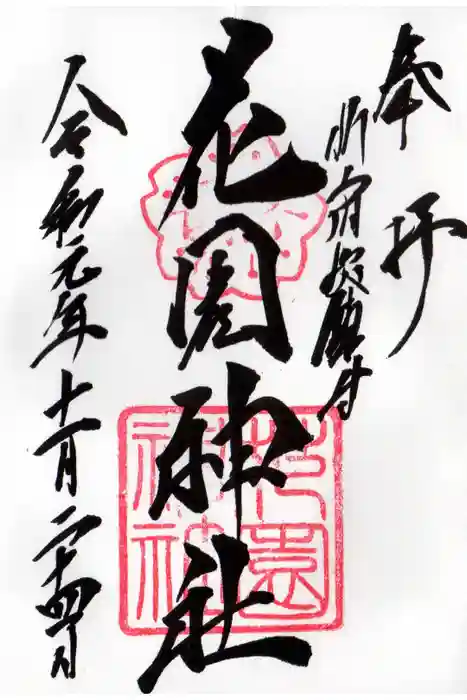 奉拝
新宿総鎮守
花園神社
令和元年十一月二十四日
花園神社